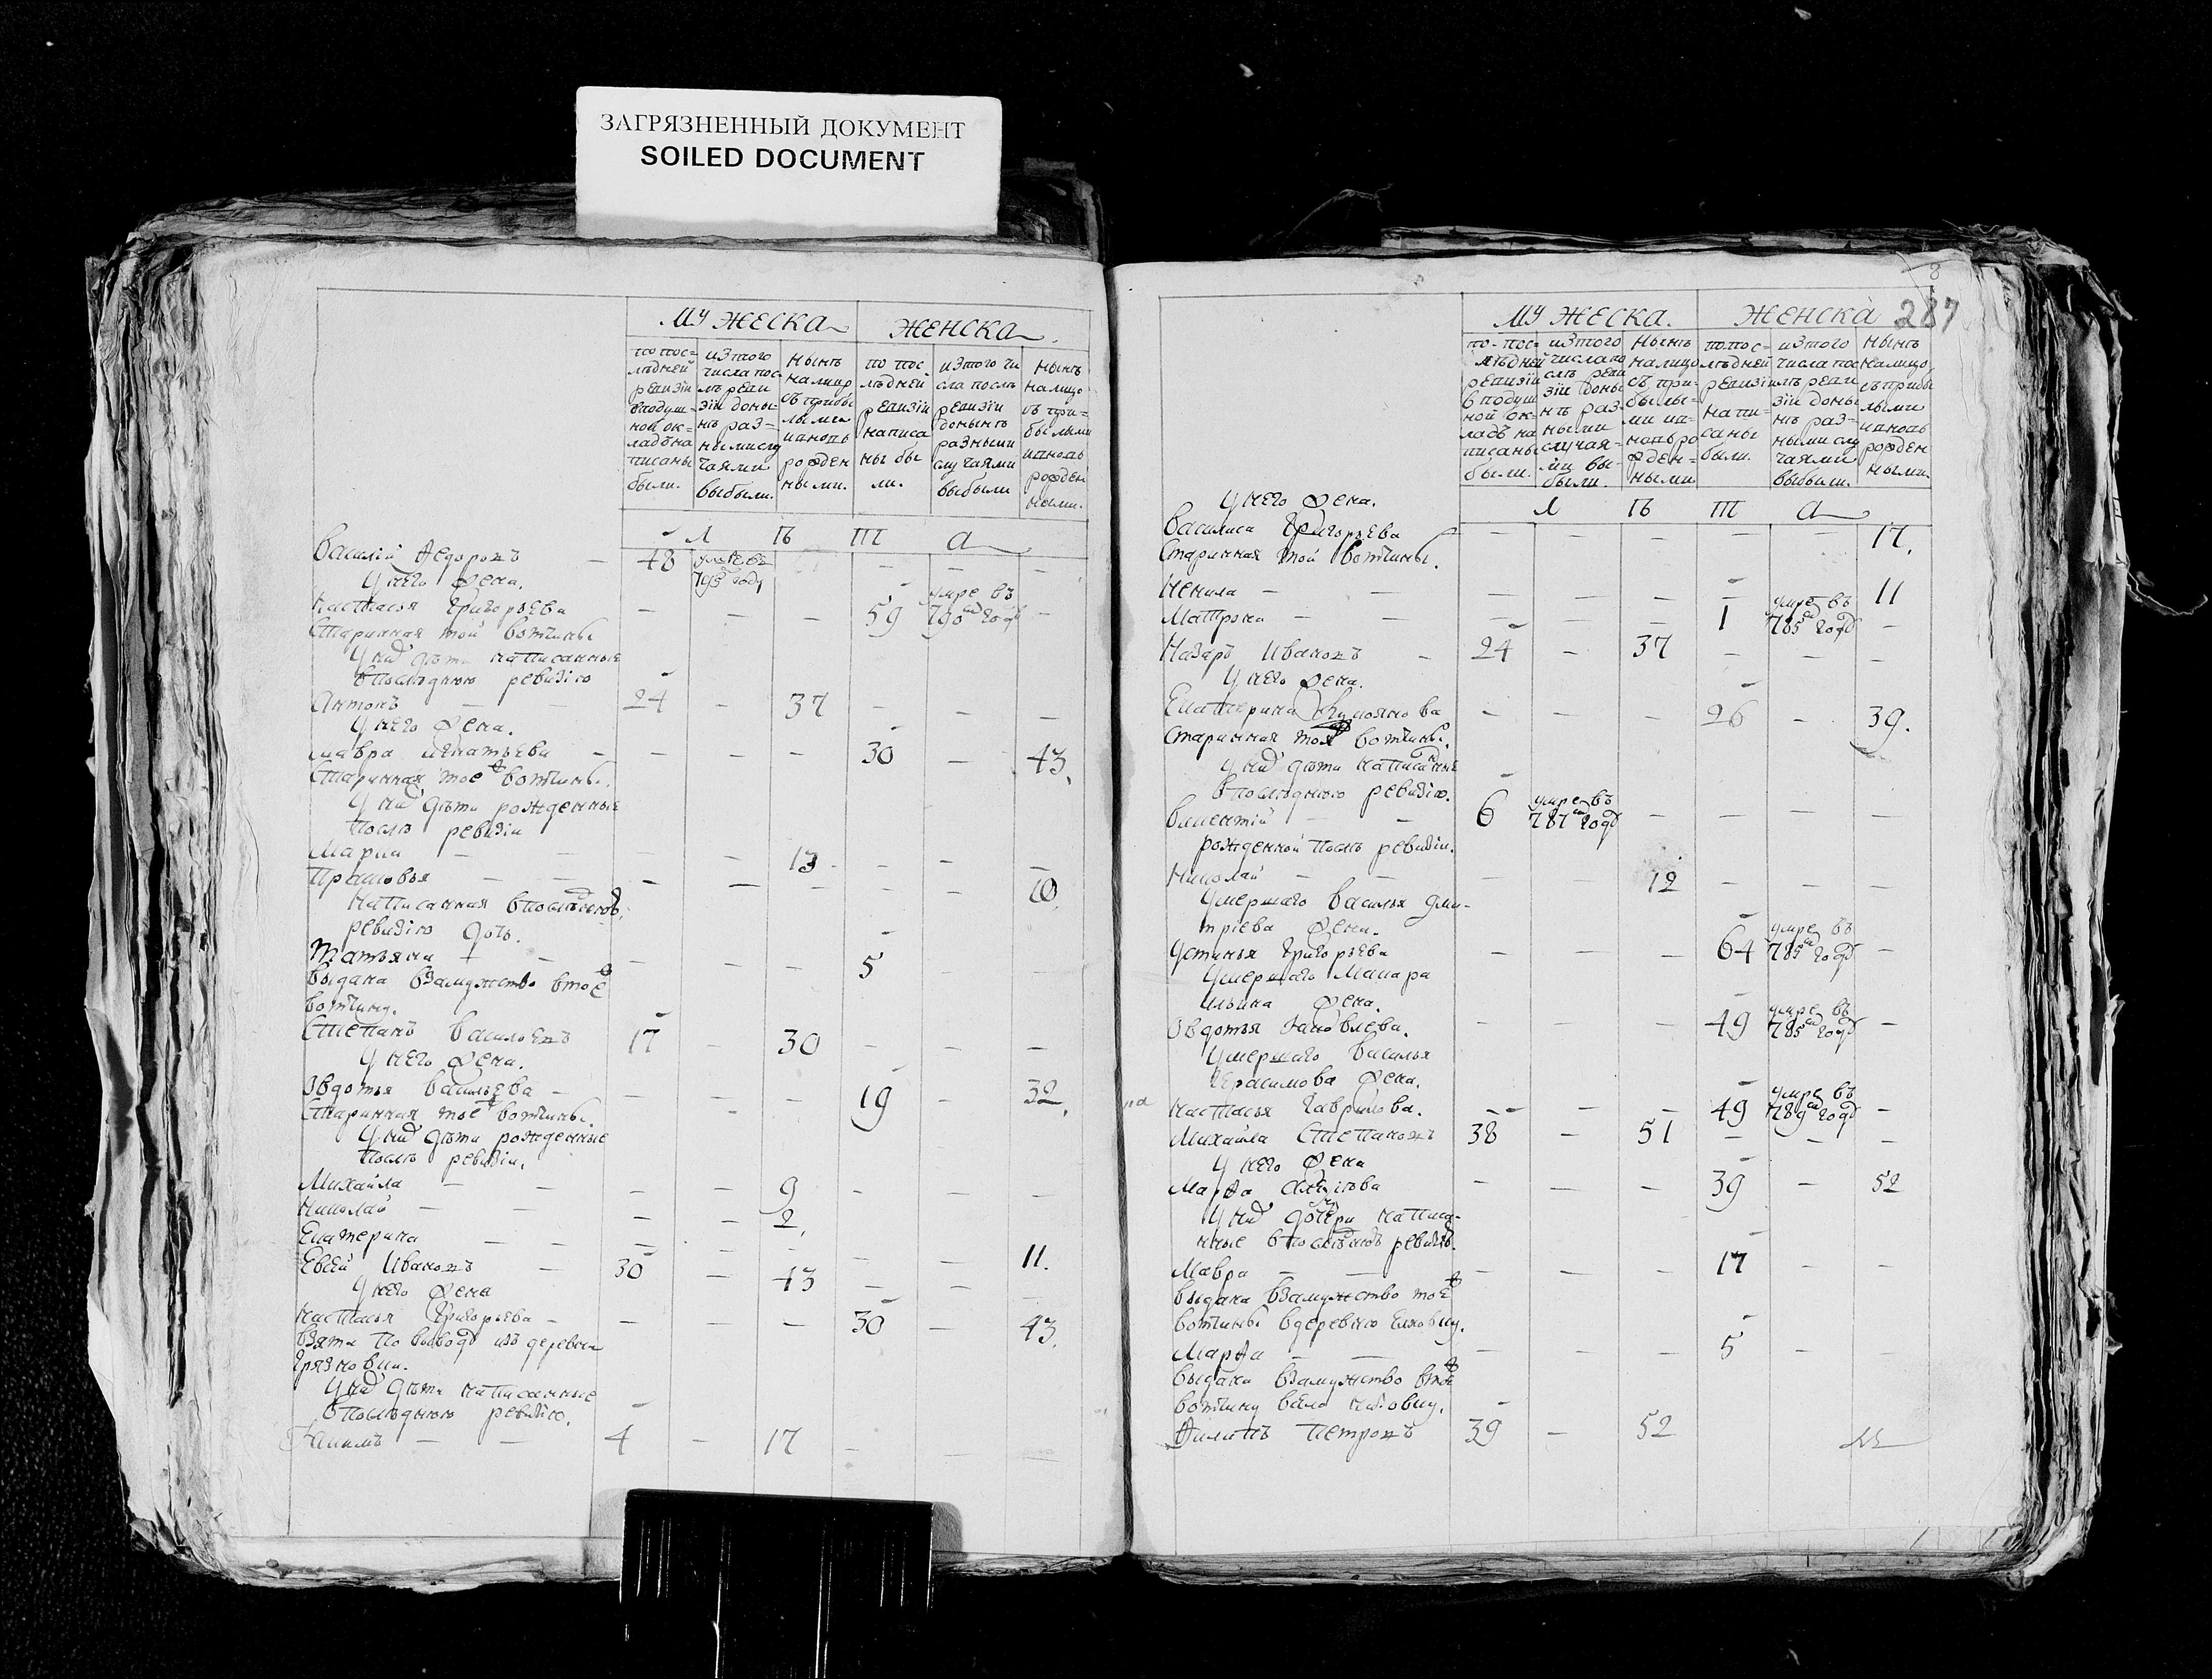 ЗАГРЯЗНЕННЫЙ ДОКУМЕНТ
SOILED DOCUMENT
МУЖЕСКА
ЖЕНСКА.
по пос=
лѣдней
ревизіи
вподуш=
ной ок=
ладъ на
писаны
были.
изтого
числа пос
лѣ реви
зіи доны=
нѣ раз=
ными слу
чаями
выбыли.
нынѣ
налицо
съ прибы
лыми
ивновь
рожден
ными.
по пос=
лѣдней
ревизіи
написа
ны бы
ли.
изтого чи
сла послѣ
ревизіи
донынѣ
разными
случаями
выбыли
нынѣ
налицо
съ при=
былыми
ивновь
рожден
ными.
Л Ѣ Т А
Василій Ѳедоровъ — 48 умре въ 795 году — —
У него жена.
Настасья Григорьева — — — 59 умре въ 790м году —
Старинная той вотчины
У них дѣти написанные
впослѣднюю ревизію
Антонъ 24 — 37 — — —
У него жена.
Мавра Игнатьева — — — — 30 — 43.
Старинная тоей вотчины.
У них дѣти рожденные
послѣ ревизіи
Марка — — 13 — — —
Прасковья — — — — — — 10.
Написанная впослѣднюю
ревизію дочь.
Татьяна — — — — 5 —
Выдана взамужство втое
вотчину.
Степанъ Васильевъ 17 — 30 — — —
У него жена.
Овдотья Васильева — — — — 19 — 32.
Старинная тоей вотчины.
У них дѣти рожденные
послѣ ревизіи.
Михайла — — — — 9 — — —
Николай — — — — 2.
Екатерина — — — — — — — 11.
Евсей Ивановъ — 30 — 43 — —
У него жена
Настасья Григорьева — — — — 30 — 43.
Взята по выводу изъ деревни
Грязновки.
У них дѣти написанные
впослѣднюю ревизію.
Якимъ — — 4 — 17 — — —
8
287
МУЖЕСКА.
ЖЕНСКА
по-пос=
лѣдней
ревизіи
вподуш
ной ок=
ладъ на
писаны
были.
изтого
числапо
слѣ реви
зіи доны
нѣ раз=
ными
случая=
ми вы-
были.
Нынѣ
налицо
съ при=
былы=
ми ив=
новь ро
жден=
ными
попос=
лѣдней
ревизіи
напи=
саны
были.
изтого
числа пос
лѣ реви
зіи доны
нѣ раз=
ными слу
чаями
выбыли.
Нынѣ
налицо
съ прибы
лыми
ивновь
рожден
ными.
Л Ѣ Т А
У него жена.
Василиса Григорьева — — — — — 17.
Старинная той вотчины.
Ненила — — — — — — 11
Матрона — — — — 1 умре въ 785м году —
Назаръ Ивановъ — 24 — 37 — — —
У него жена.
Екатерина — — — 26 — 39.
Старинная тоя вотчины.
У них дѣти написанные
впослѣднюю ревизію.
Викентій — — 6 умре въ 787м году — — — —
рожденной послѣ ревизіи.
Николай — — — — 12 — — —
Умершаго Василья Дми-
тріева жена.
Устинья Григорьева — — — 64 умре въ 785м году —
Умершаго Макара
Ильина жена.
Овдотья Яковлева. — — — 49 умре въ 785м году —
Умершаго Василья
Герасимова жена.
Настасья Гаврилова. — — — 49 умре въ 789м году —
Михайла Степановъ 38 — 51 — — —
У него жена
Марѳа — — — 39 — 52
У них дочери написа-
нные впослѣднюю ревизію.
Мавра — — — — — 17 — —
Выдана взамужство тоей
вотчины вдеревню
Марѳа — — — — — 5 — —
Выдана взамужство втое
вотчину
Филипъ Петровъ 39 — 52